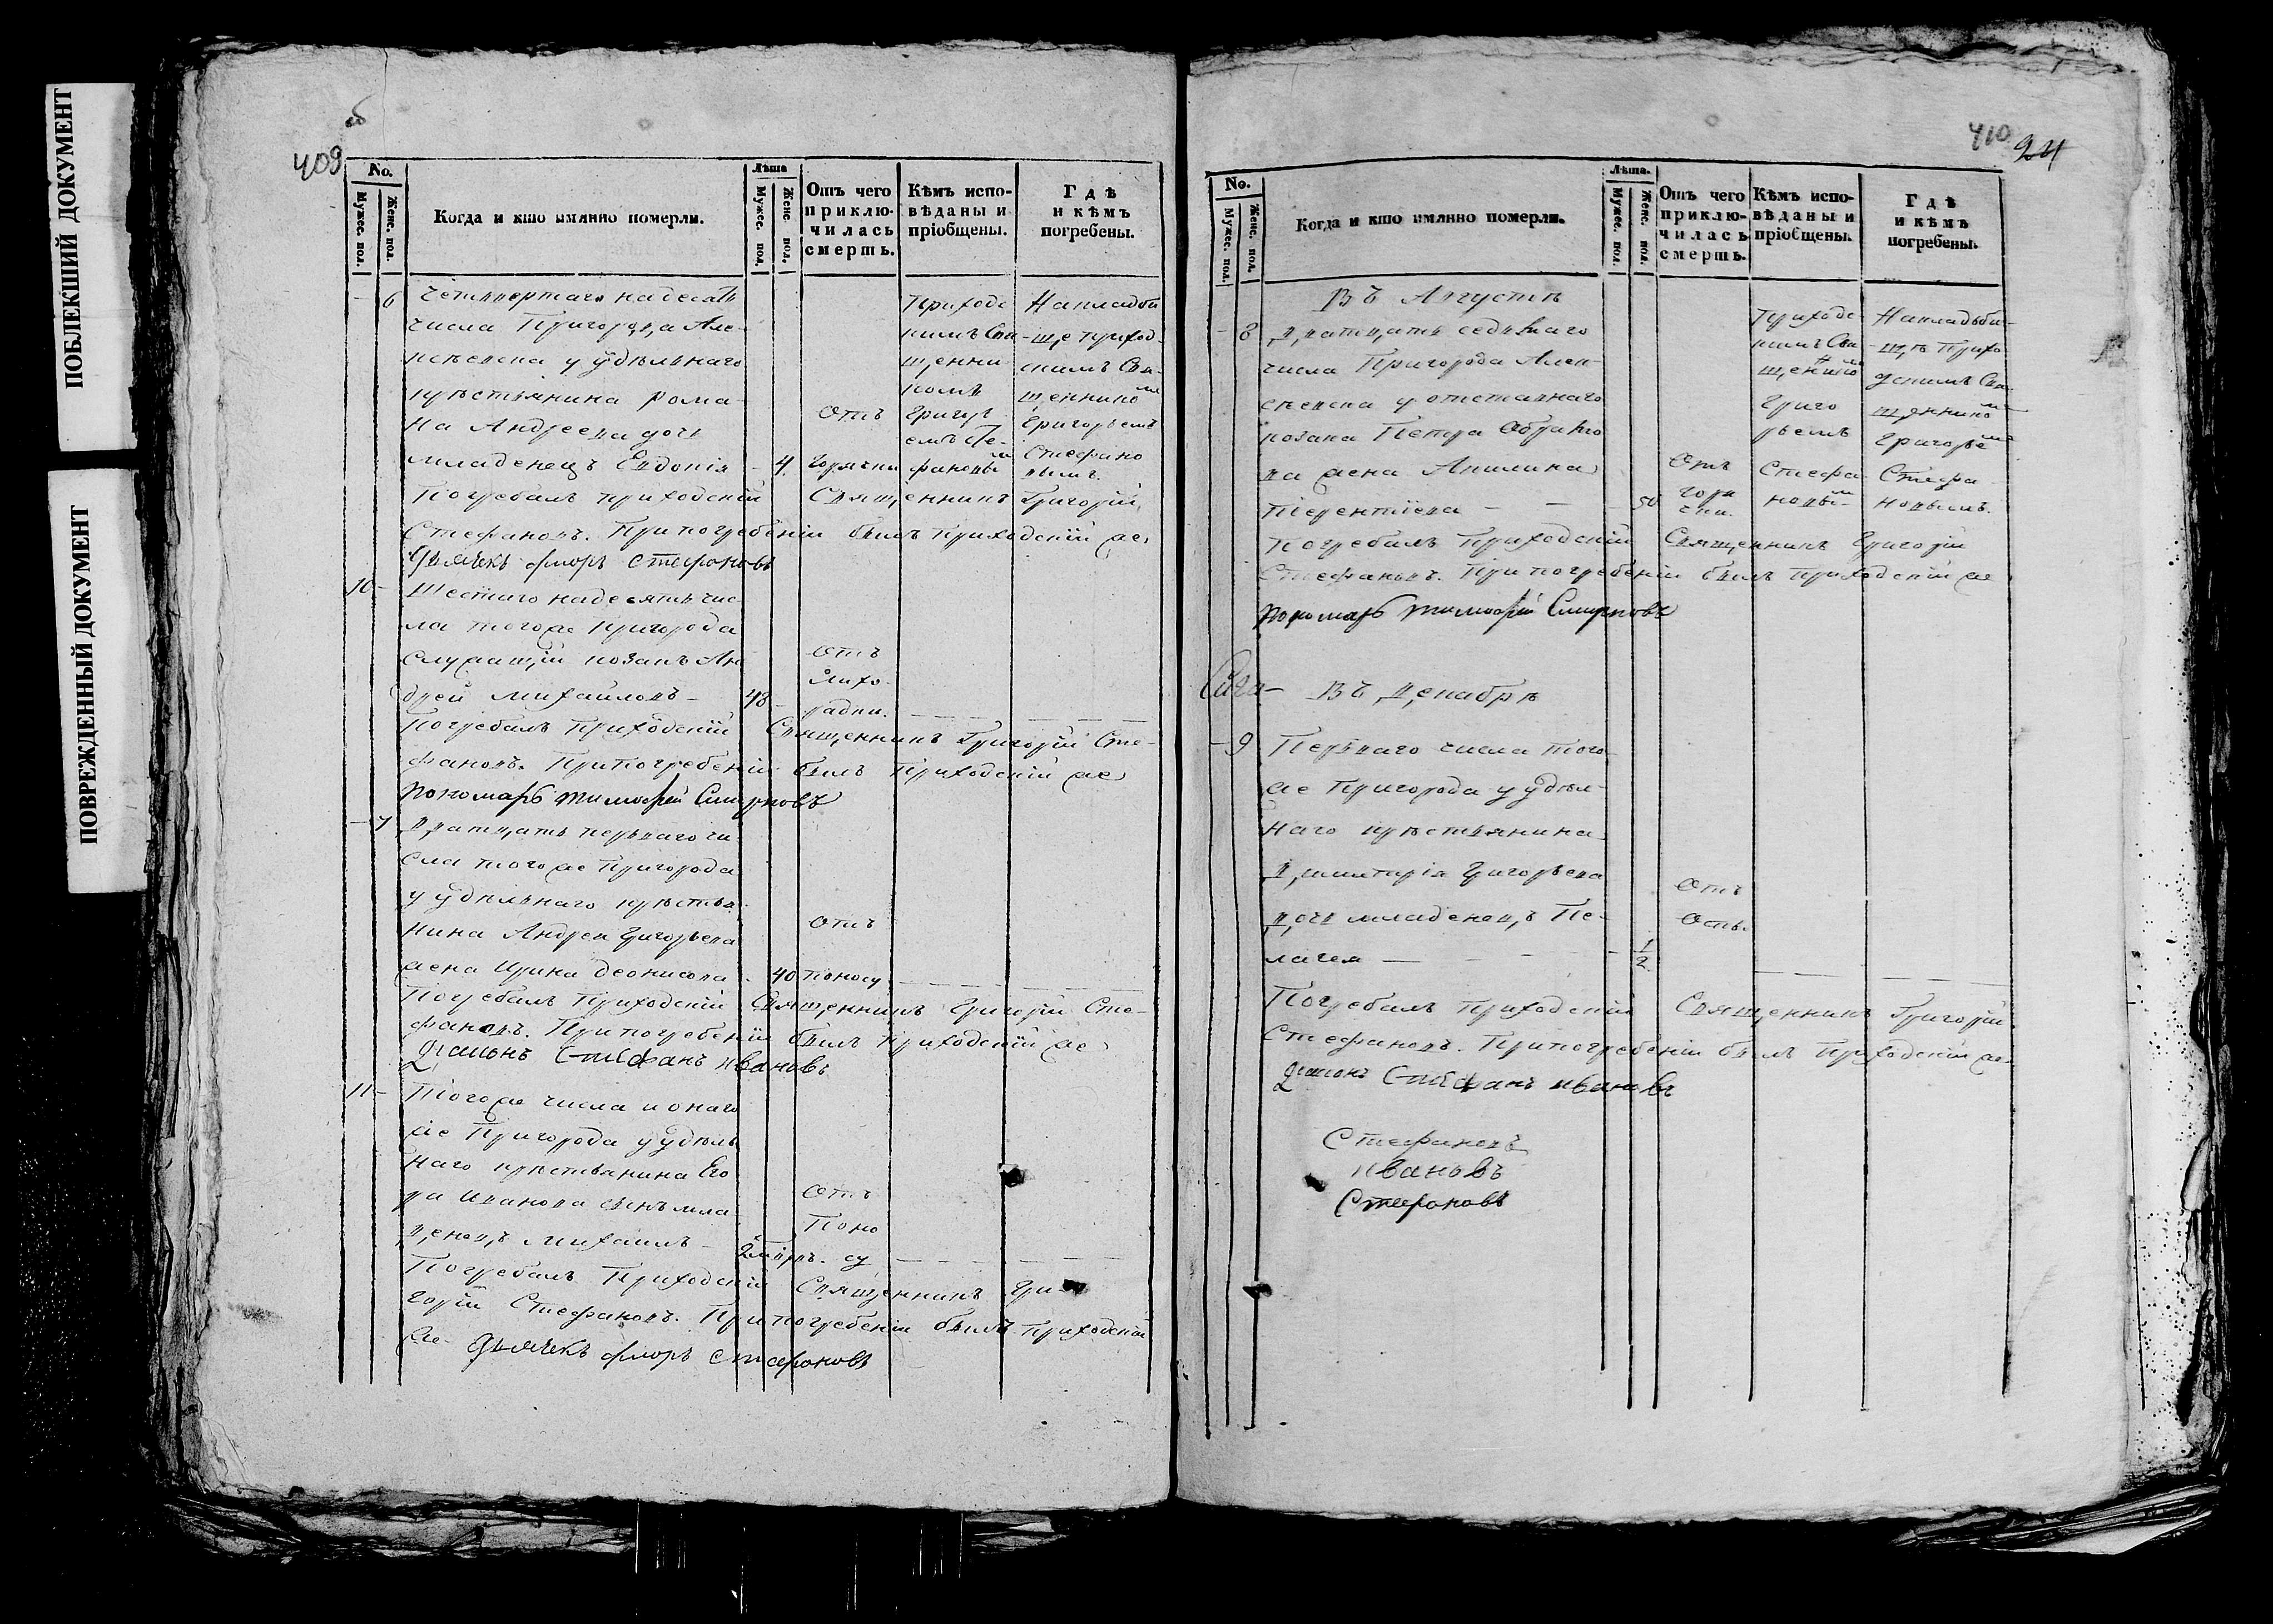 ПОБЛЕКШИЙ ДОКУМЕНТ
ПОВРЕЖДЕННЫЙ ДОКУМЕНТ
409
No.
Мужес. пол.
Женс. пол.
Когда и кто имянно померли.
Лѣта
Мужес. пол.
Женс. пол.
Отъ чего приклю-
чилась смерть.
Кѣмъ испо-
вѣданы и
пріобщены.
Гдѣ
и кѣмъ
погребены.
6
Четвертаго надесять
числа Пригорода Але-
ксѣевска у удѣльнаго
крѣстьянина Рома-
на Андреева дочь
младенецъ Евдокія - 4.
Отъ
горячки
Приход-
скимъ Свя-
щенни-
комъ
Григорь-
емъ Сте-
фановым
На кладби-
ще приход-
скимъ Свя-
щеннико м
Григорьемъ
Стефано
вымъ.
Погребалъ приходскій Священникъ Григорій
Стефановъ. При погребеніи былъ приходскій же
Дьячекъ флоръ Стефановъ
10 -
Шестаго надесять чис-
ла тогоже Пригорода
служащій козакъ Ан
дрей Михайловъ - 48 -
Отъ
Лихо-
радки.
Погребалъ Приходскій Священникъ Григорій Сте-
фановъ. При погребеніи былъ Приходскій же
пономарь тимофей Смирновъ
- 7
Дватцать перваго чи-
сла тогоже Пригорода
у удѣльнаго крѣстья-
нина Андрея Григорьева
жена Ирина Деонисова - 40
Отъ
поносу
Погребалъ Приходскій Священникъ Григорій Сте-
фановъ. При погребеніи былъ Приходскій же
Диаконъ Стефанъ Ивановъ
11 -
Того же числа и онаго
же Пригорода у удѣль
наго крѣстьянина Его
ра Иванова сынъ мла
денецъ Михаилъ -
Отъ
Поно
су
Погребалъ Приходскій Священникъ Гри-
горій Стефановъ. При погребеніи былъ приходскій
же дьячекъ флоръ Стефановъ
410
24
No.
Мужес. пол.
Женс. пол.
Когда и кто имянно померли.
Лѣта.
Мужес. пол.
Женс. пол.
Отъ чего приклю-
чилась смерть.
Кѣмъ испо-
вѣданы и
пріобщены.
Гдѣ
и кѣмъ
погребены.
Въ Августѣ
- 8
Дватцать седьмаго
числа Пригорода Алек-
сѣевска у отставнаго
козака Петра Абрамо
ва жена Акилина
Терентіева - - 50
Отъ
горя
чки.
Приход-
скимъ Свя-
щеннико м
Григо
рьемъ
Стефа
новым
На кладби-
щѣ Прихо-
дскимъ Свя-
щеннико м
Григорье м
Стефа
новымъ.
Погребалъ Приходскій Священникъ Григорій
Стефановъ. При погребеніи былъ приходскій же
пономарь тимофей Смирновъ
Въ Декабрѣ
- 9
Перваго числа того-
же Пригорода у удѣл-
наго крѣстьянина
Димитрія Григорьева
дочь младенецъ Пе-
лагея - - 1/2
Отъ
Оспы.
Погребалъ Приходскій Священникъ Григорій
Стефановъ. При погребеніи былъ Приходскій же
Диаконъ Стефанъ Ивановъ
Стефановъ
Ивановъ
Стефановъ